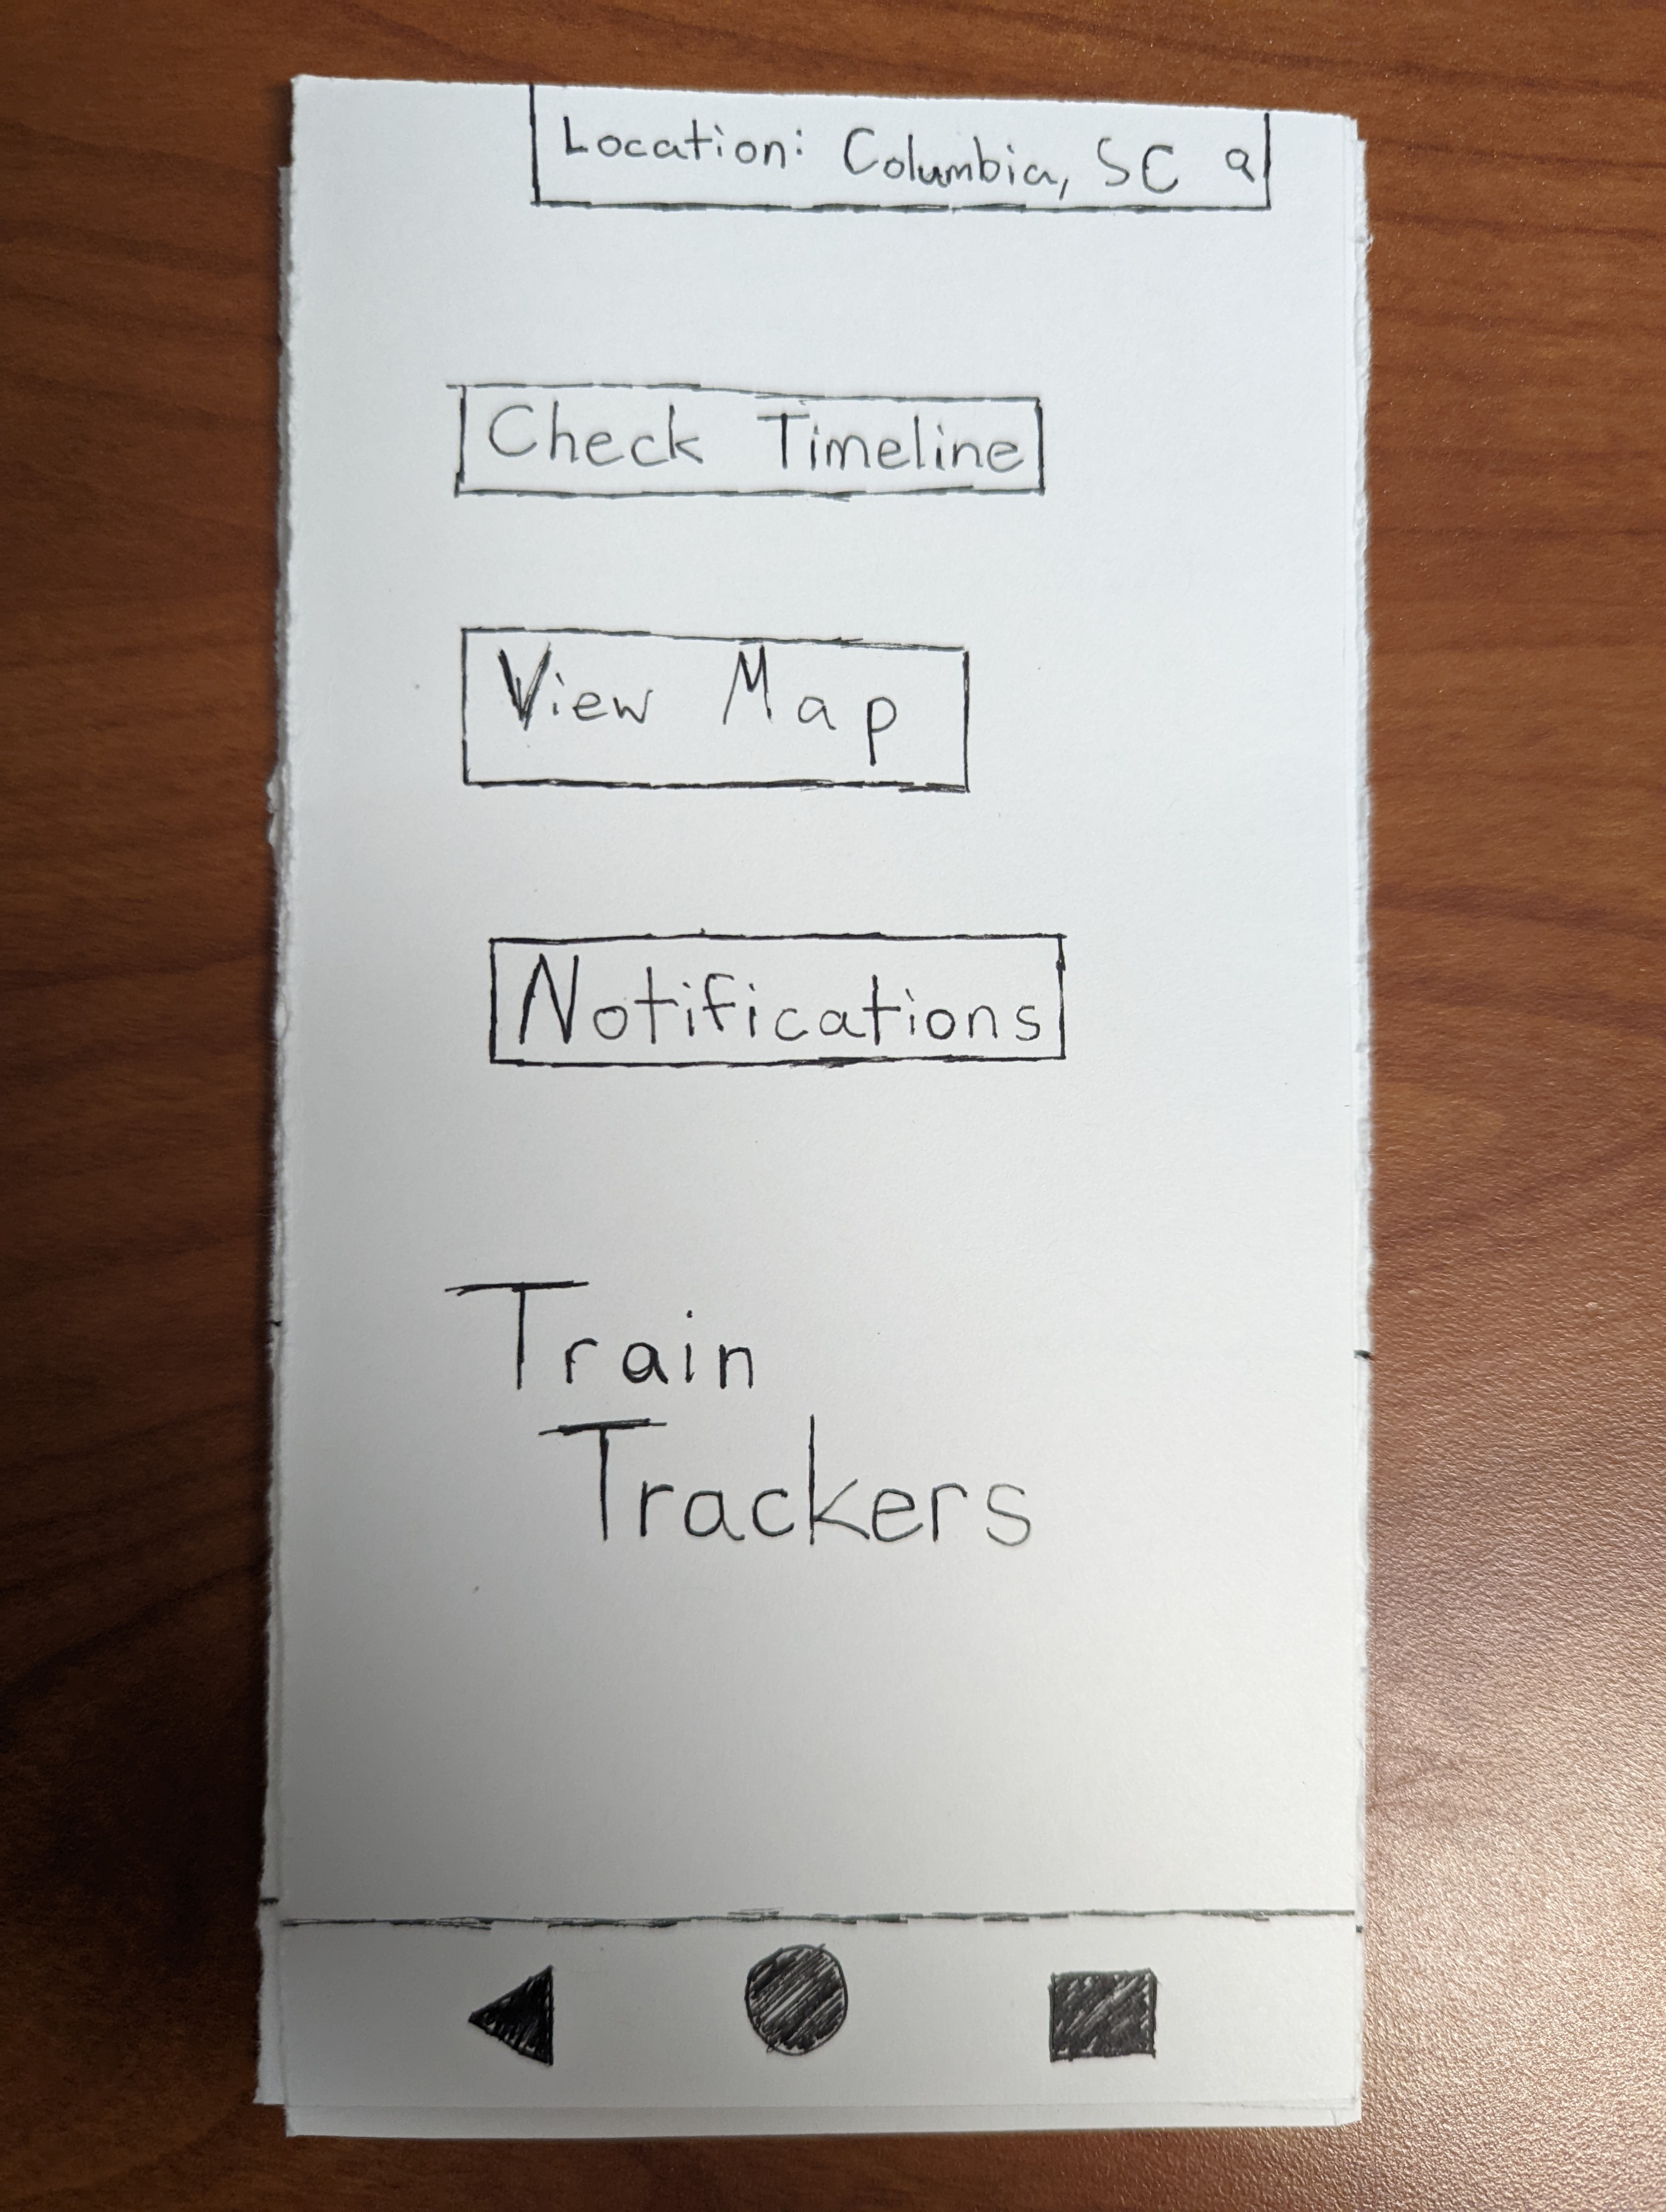 Location: Columbia, SC
Check Timeline
View Map
Notifications
Train
Trackers